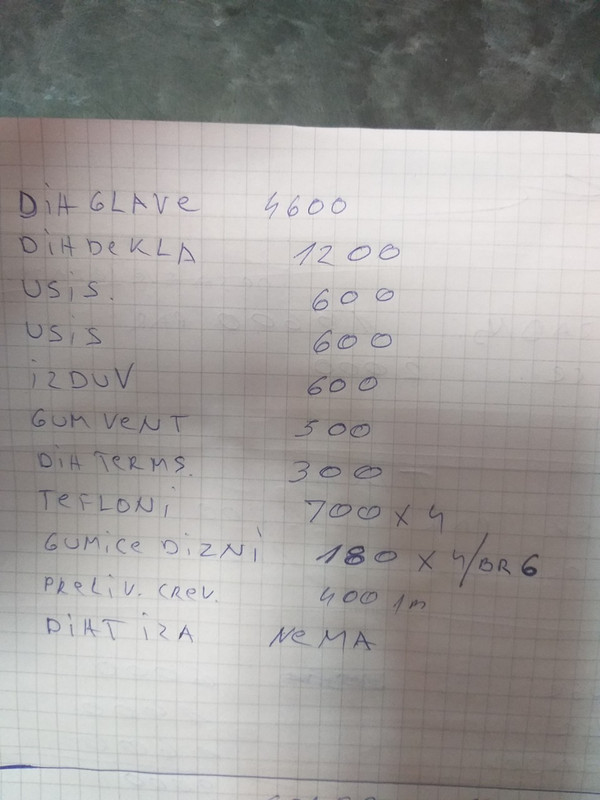 DiH GLAVe 4600
DiH DeKLA 1200
USiS. 600
USiS 600
iZDUV 600
GUM VeNT 500
DiH TeRMS. 300
TeFLONi 700 x 4
GUMiCe DiZNi 180 x 4/BR6
PReLiV. CReV. 400 1m
DiHT iZA NeMA